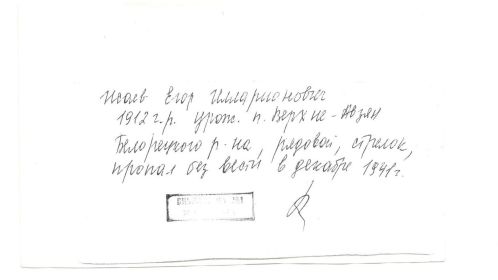 Исаев Егор Илларионович
1912 г.р. урож. п. Верхне-Авзян
Белорецкого р-на, рядовой, стрелок,
пропал без вести в декабре 1941 г.